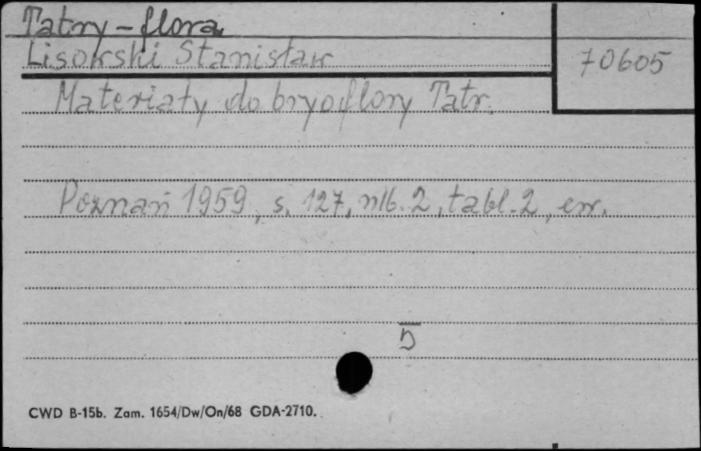 Tatry – flora
Lisowski Stanisław
70605
Materiały do bryoflory Tatr.
Poznań 1959, s. 127, nlb. 2, tabl. 2, err.
5
CWD B-15b. Zam. 1654/Dw/On/68 GDA-2710.